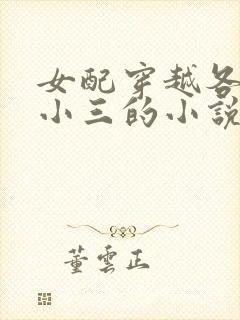 女配穿越各
小三的小說
董雲正